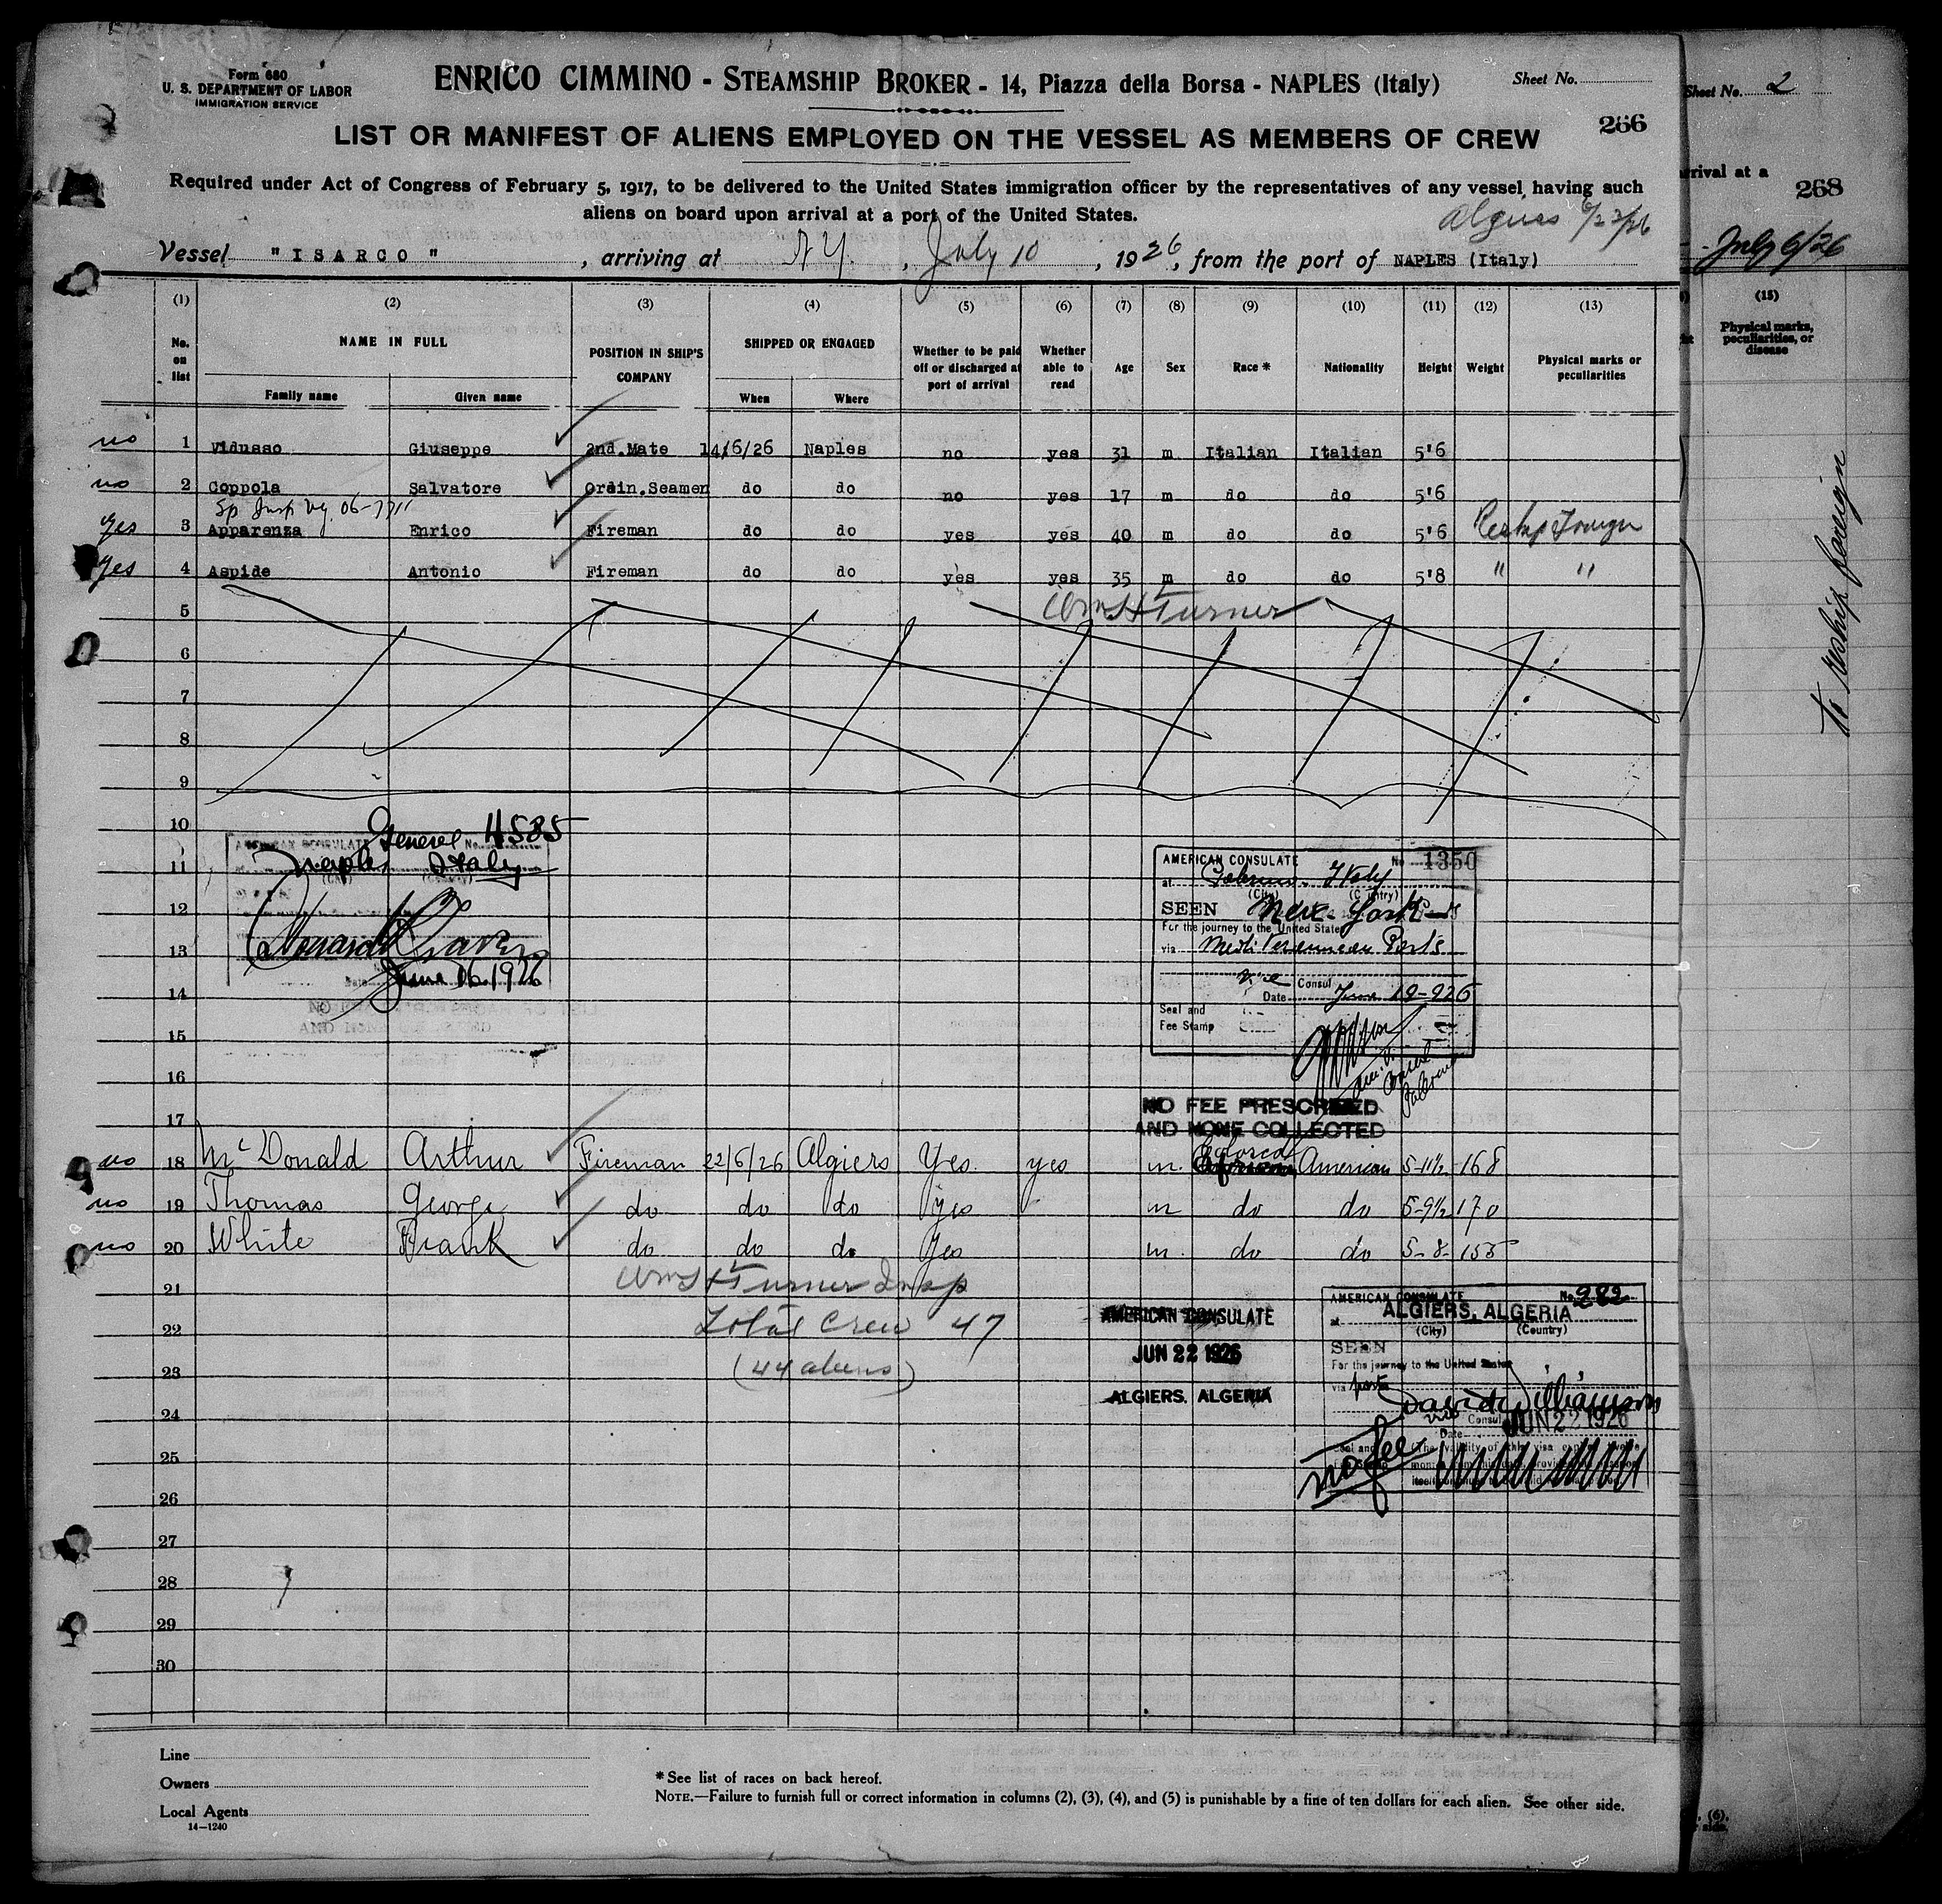 Form 680
U. S. DEPARTMENT OF LABOR
IMMIGRATION SERVICE
ENRICO CIMMINO - STEAMSHIP BROKER - 14, Piazza della Borsa - NAPLES (Italy)
Sheet No.
266
LIST OR MANIFEST OF ALIENS EMPLOYED ON THE VESSEL AS MEMBERS OF CREW
Required under Act of Congress of February 5, 1917, to be delivered to the United States immigration officer by the representatives of any vessel having such
aliens on board upon arrival at a port of the United States.
Algiers 6/23/26
Vessel "ISARCO", arriving at N.Y., July 10, 1926, from the port of NAPLES (Italy)
(1) (2) (3) (4) (5) (6) (7) (8) (9) (10) (11) (12) (13)
No. on list
NAME IN FULL
Family name Given name
POSITION IN SHIP'S COMPANY
SHIPPED OR ENGAGED
When Where
Whether to be paid off or discharged at port of arrival
Whether able to read
Age Sex Race * Nationality Height Weight
Physical marks or peculiarities
no 1 Vidusso Giuseppe 2nd.Mate 14/6/26 Naples no yes 31 m Italian Italian 5'6
no 2 Coppola Salvatore Ordin.Seamen do do no yes 17 m do do 5'6
Yes 3 Apparenza Enrico Fireman do do yes yes 40 m do do 5'6 Reship Foreign
Yes 4 Aspide Antonio Fireman do do yes yes 35 m do do 5'8 " "
5 Wm H Turner
6
7
8
9
10
General 4585
AMERICAN CONSULATE No.
11
Naples Italy
12
13
June 16. 1926
14
15
16
17
AMERICAN CONSULATE No 1350
at Palermo. Italy
(City) (Country)
SEEN New York
For the journey to the United States
via Mediterranean Ports
Vice Consul
Date June 19-926
Seal and
Fee Stamp
Consul
Palermo
NO FEE PRESCRIBED
AND NONE COLLECTED
Colored
no 18 McDonald Arthur Fireman 22/6/26 Algiers Yes. yes m. American 5-11½ 168
no 19 Thomas George do do do yes m do do 5-9½ 170
no 20 White Frank do do do Yes m. do do 5-8- 155
21 Wm H Turner Insp
22 Total Crew 47
23 (44 aliens)
24
25
26
27
28
29
30
AMERICAN CONSULATE
JUN 22 1926
ALGIERS. ALGERIA
AMERICAN CONSULATE No. 282
at ALGIERS, ALGERIA
(City) (Country)
SEEN
For the journey to the United States
via ports
David Williamson
Vice Consul
Date JUN 22 1926
no fee
Line
Owners
Local Agents
14—1240
*See list of races on back hereof.
NOTE.—Failure to furnish full or correct information in columns (2), (3), (4), and (5) is punishable by a fine of ten dollars for each alien. See other side.
Sheet No. 2
arrival at a
268
July 6/26
(15)
Physical marks, peculiarities, or disease
To reship foreign